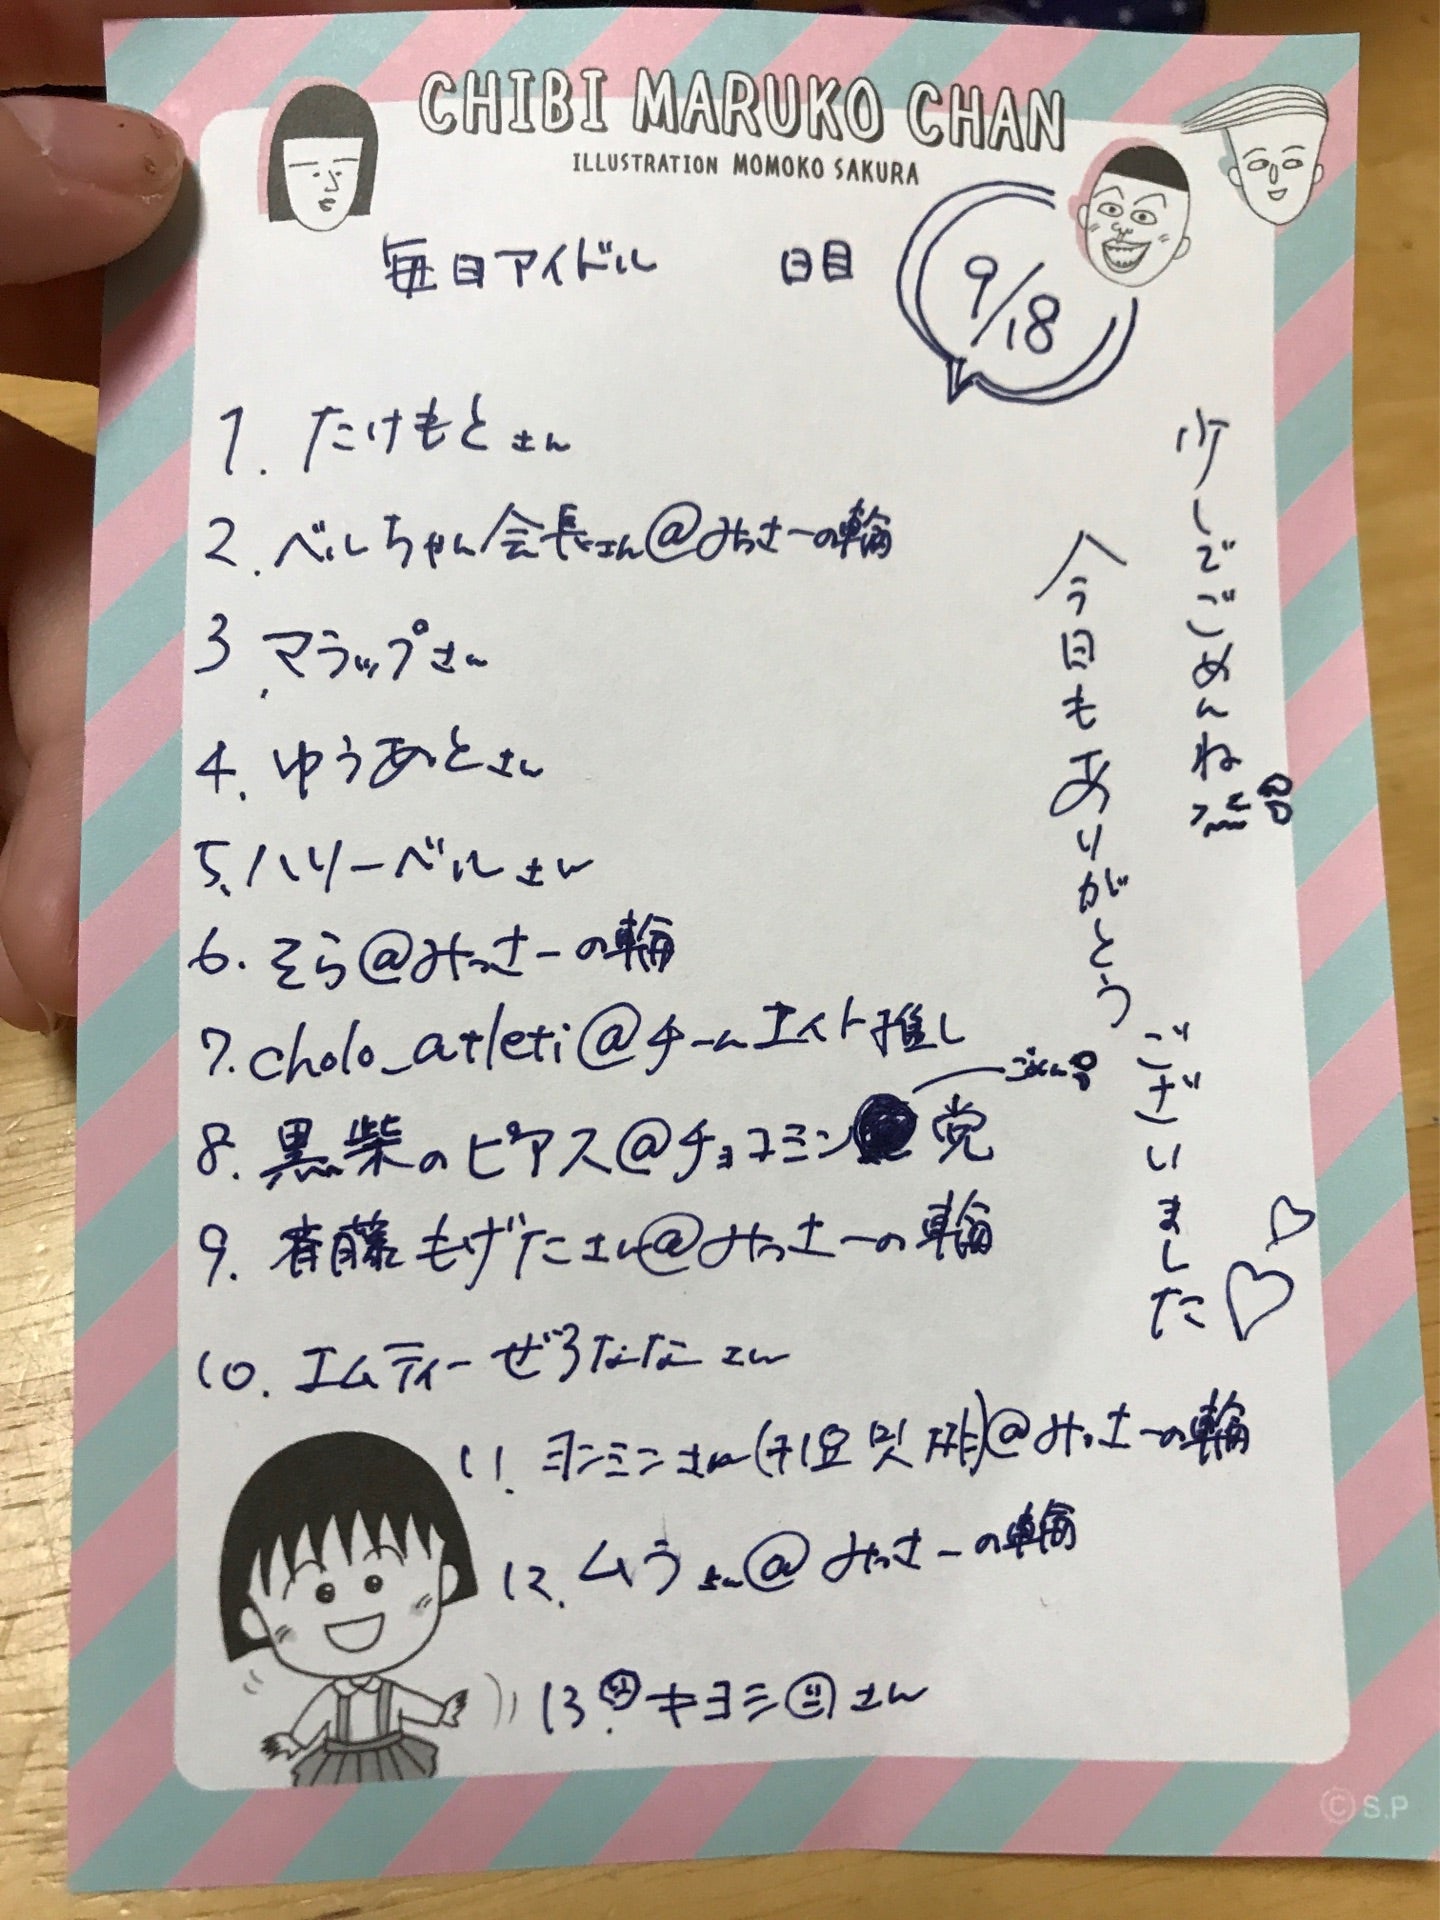 CHIBI MARUKO CHAN
ILLUSTRATION MOMOKO SAKURA
毎日アイドル 日目
9/18
1. たけもとさん
2. ベルちゃん会長さん@みっさーの輪
3. マラップさん
4. ゆうあとさん
5. ハリーベルさん
6. そら@みっさーの輪
7. cholo_atleti@チームエイト推し
8. 黒柴のピアス@チョコミン党
ごめん
9. 斉藤もげたさん@みっさーの輪
10. エムティーぜろななさん
11. ヨンミンさん()@みっさーの輪
12. ムうさん@みっさーの輪
13. キヨシさん
少しでごめんね
今日もありがとうございました
© S.P